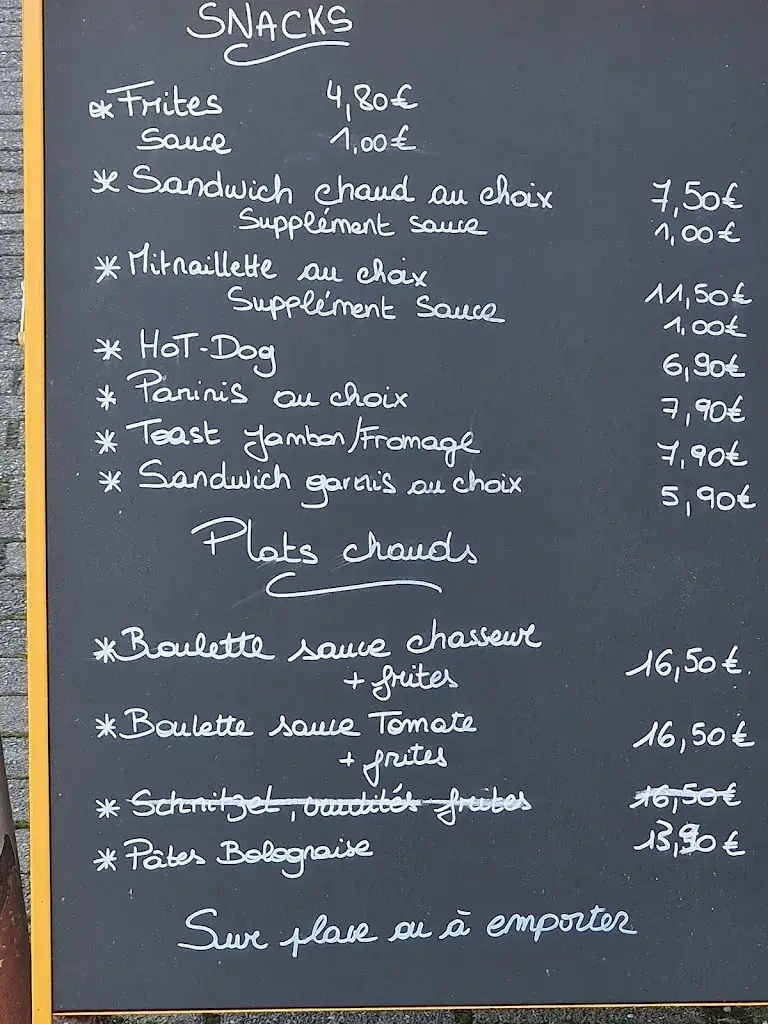 SNACKS
* Frites 4,80€
Sauce 1,00€
* Sandwich chaud au choix 7,50€
Supplément sauce 1,00€
* Mitraillette au choix 11,50€
Supplément Sauce 1,00€
* HOT-DOG 6,90€
* Paninis au choix 7,90€
* Toast Jambon/Fromage 7,90€
* Sandwich garnis au choix 5,90€
Plats chauds
* Boulette sauce chasseur 16,50€
+ frites
* Boulette sauce Tomate 16,50€
+ frites
* Schnitzel, crudités frites 16,50€
* Pâtes Bolognaise 13,90€
Sur place ou à emporter